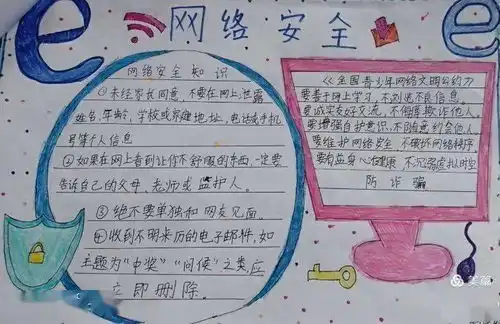 e
网络安全
e
网络安全知识
①未经家长同意,不要在网上泄露
姓名,年龄,学校或家庭地址,电话或手机
号等个人信息
②如果在网上看到让你不舒服的东西,一定要
告诉自己的父母,老师或监护人。
③绝不要单独和网友见面。
④收到不明来历的电子邮件,如
主题为“中奖”“问候”之类,应
立即删除。
《全国青少年网络文明公约》
要善于网上学习,不浏览不良信息。
要诚实友好交流,不侮辱欺诈他人。
要增强自护意识,不随意约会他人。
要维护网络安全,不破坏网络秩序
要有益身心健康,不沉溺虚拟时空
防诈骗
美篇